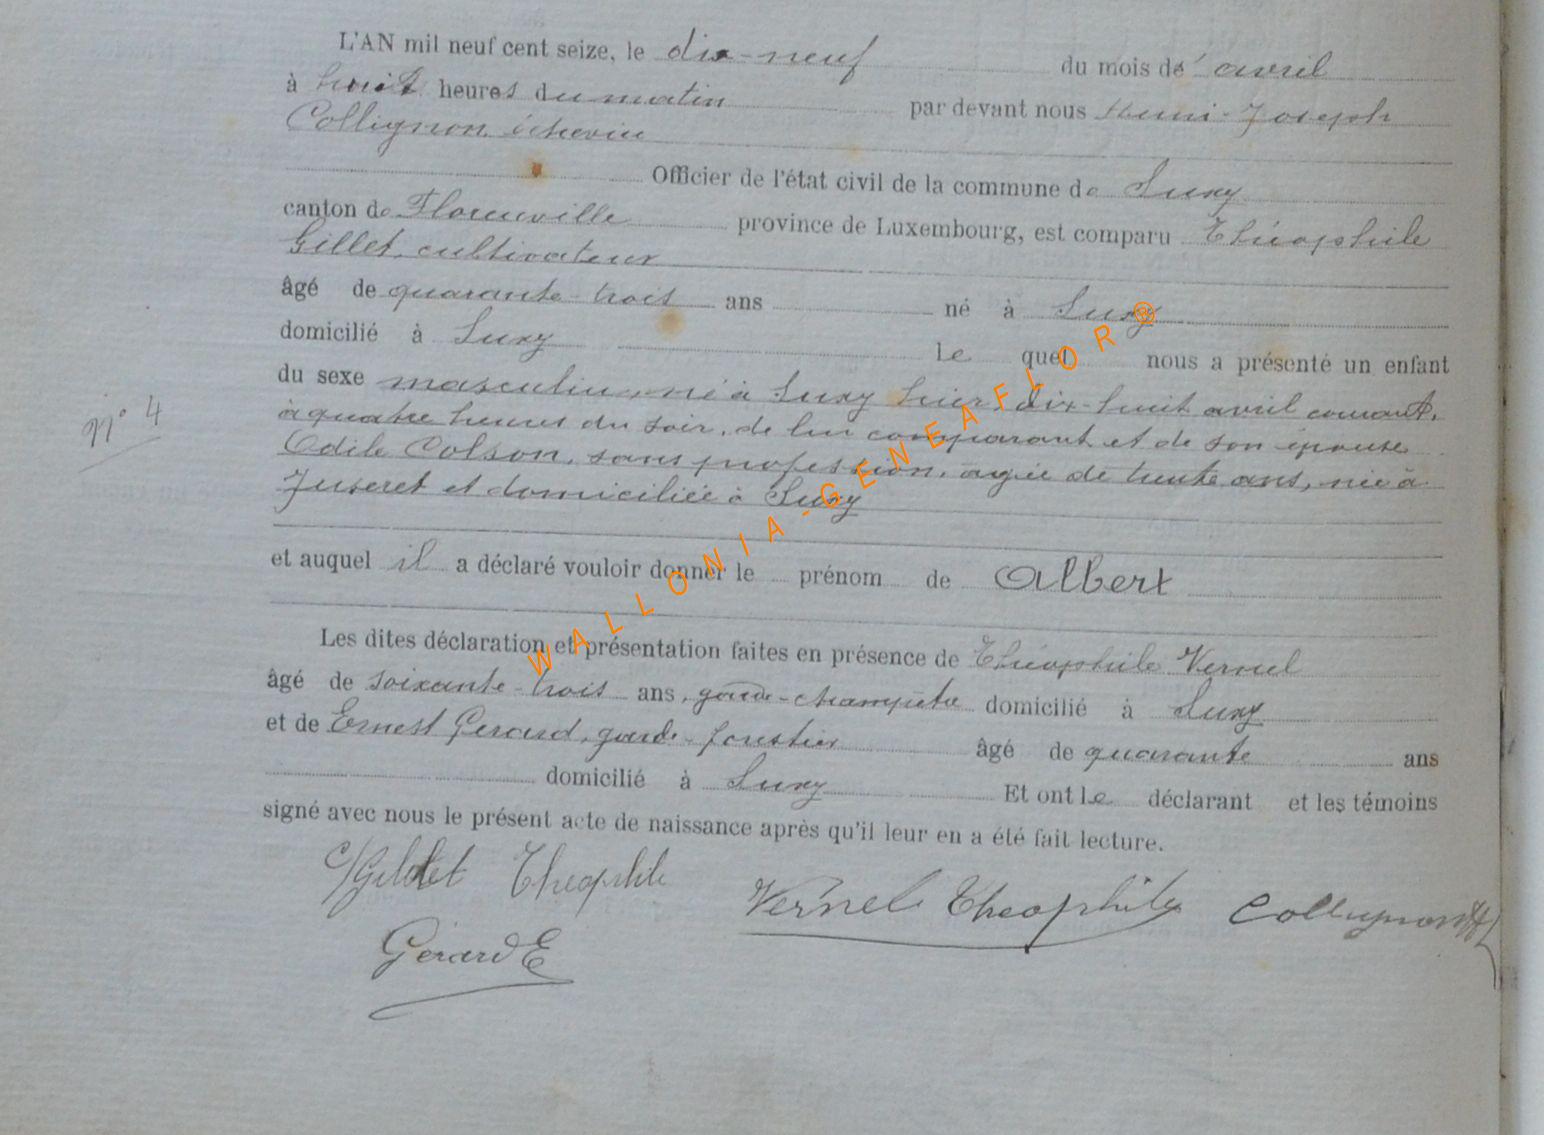 L'AN mil neuf cent seize, le dix-neuf du mois de avril
à huit heures du matin par devant nous Henri-Joseph
Collignon échevin
Officier de l'état civil de la commune de Suxy
canton de Florenville province de Luxembourg, est comparu Théophile
Gillet, cultivateur
âgé de quarante-trois ans né à Suxy
domicilié à Suxy le quel nous a présenté un enfant
du sexe masculin, né à Suxy hier dix-huit avril courant,
à quatre heures du soir, de lui comparant et de son épouse
N° 4
Odile Colson, sans profession, âgée de trente ans, née à
Juseret et domiciliée à Suxy
et auquel il a déclaré vouloir donner le prénom de Albert
Les dites déclaration et présentation faites en présence de Théophile Vernel
âgé de soixante-trois ans, garde-champêtre domicilié à Suxy
et de Ernest Gérard, garde-forestier âgé de quarante ans
domicilié à Suxy Et ont le déclarant et les témoins
signé avec nous le présent acte de naissance après qu'il leur en a été fait lecture.
Gillet Theophile
Vernel Theophile Collignon H J
Gérard E
WALLONIA-GENEAFLOR®